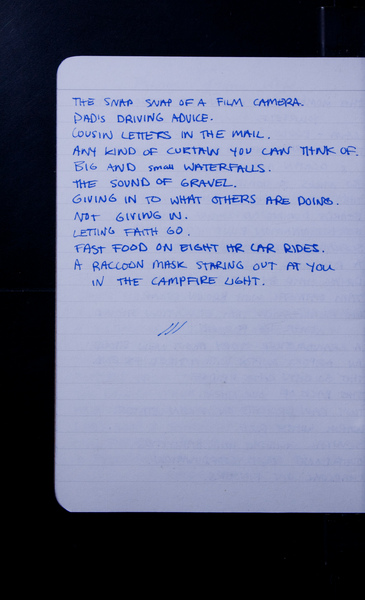 THE SNAP SNAP OF A FILM CAMERA.
DAD'S DRIVING ADVICE.
COUSIN LETTERS IN THE MAIL.
ANY KIND OF CURTAIN YOU CAN THINK OF.
BIG AND small WATERFALLS.
THE SOUND OF GRAVEL.
GIVING IN TO WHAT OTHERS ARE DOING.
NOT GIVING IN.
LETTING FAITH GO.
FAST FOOD ON EIGHT HR CAR RIDES.
A RACCOON MASK STARING OUT AT YOU
IN THE CAMPFIRE LIGHT.
///